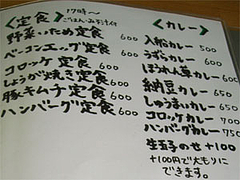 17時〜
<定食>
ごはん・みそ汁付
野菜いため定食 600
ベーコンエッグ定食 600
コロッケ定食 600
しょうが焼き定食 600
豚キムチ定食 600
ハンバーグ定食 600
<カレー>
入船カレー 500
うずらカレー 600
ほうれん草カレー 600
納豆カレー 650
しゅうまいカレー 650
コロッケカレー 700
ハンバーグカレー 750
生玉子のせ +100
+100円で大もりに
できます。